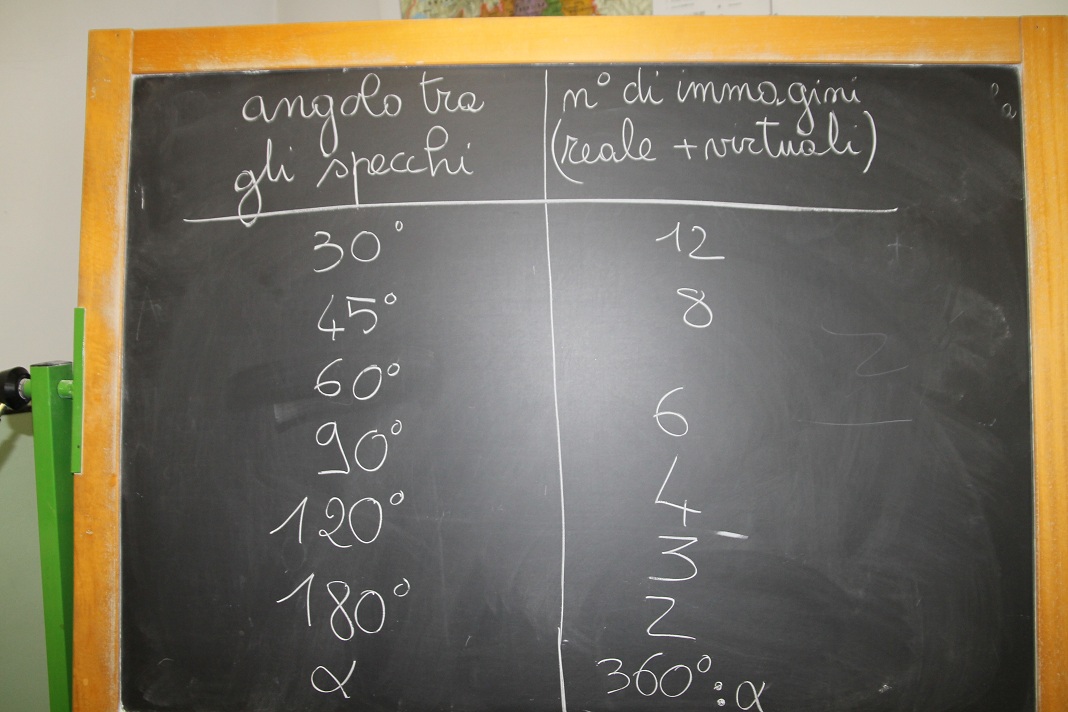 angolo tra n° di immagini
gli specchi (reale + virtuali)
30° 12
45° 8
60° 6
90° 4
120° 3
180° 2
α 360° : α